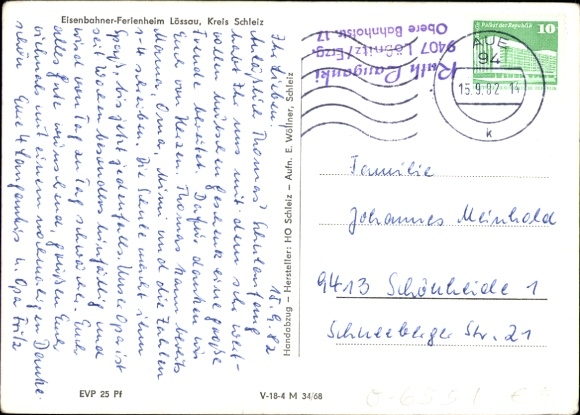 Eisenbahner-Ferienheim Lössau, Kreis Schleiz
15.9.82
Ihr Lieben!
Anläßlich Thomas' Schulanfang
habt Ihr uns mit dem sehr wert-
vollen hübschen Geschenk eine große
Freude bereitet. Dafür danken wir
Euch von Herzen. Thomas kann bereits
Mama, Oma, Mimi und die Zahlen
1-4 schreiben. Die Schule macht ihm
Spaß, bis jetzt jedenfalls. Unser Opa ist
seit Wochen besonders hinfällig und
wird von Tag zu Tag schwächer. Euch
alles gute wünschend, grüßen Euch
vielmals mit einem nochmaligen Danke-
schön Eure 4 Langankis u. Opa Fritz
Handabzug – Hersteller: HO Schleiz – Aufn. E. Wöllner, Schleiz
Ruth Langanki
9407 Lößnitz/Erzg.
Obere Bahnhofstr. 17
Palast der Republik
10
AUE
94
15.9.82-14
k
Familie
Johannes Meinhold
9413 Schönheide 1
Schneeberger Str. 21
EVP 25 Pf
V-18-4 M 34/68